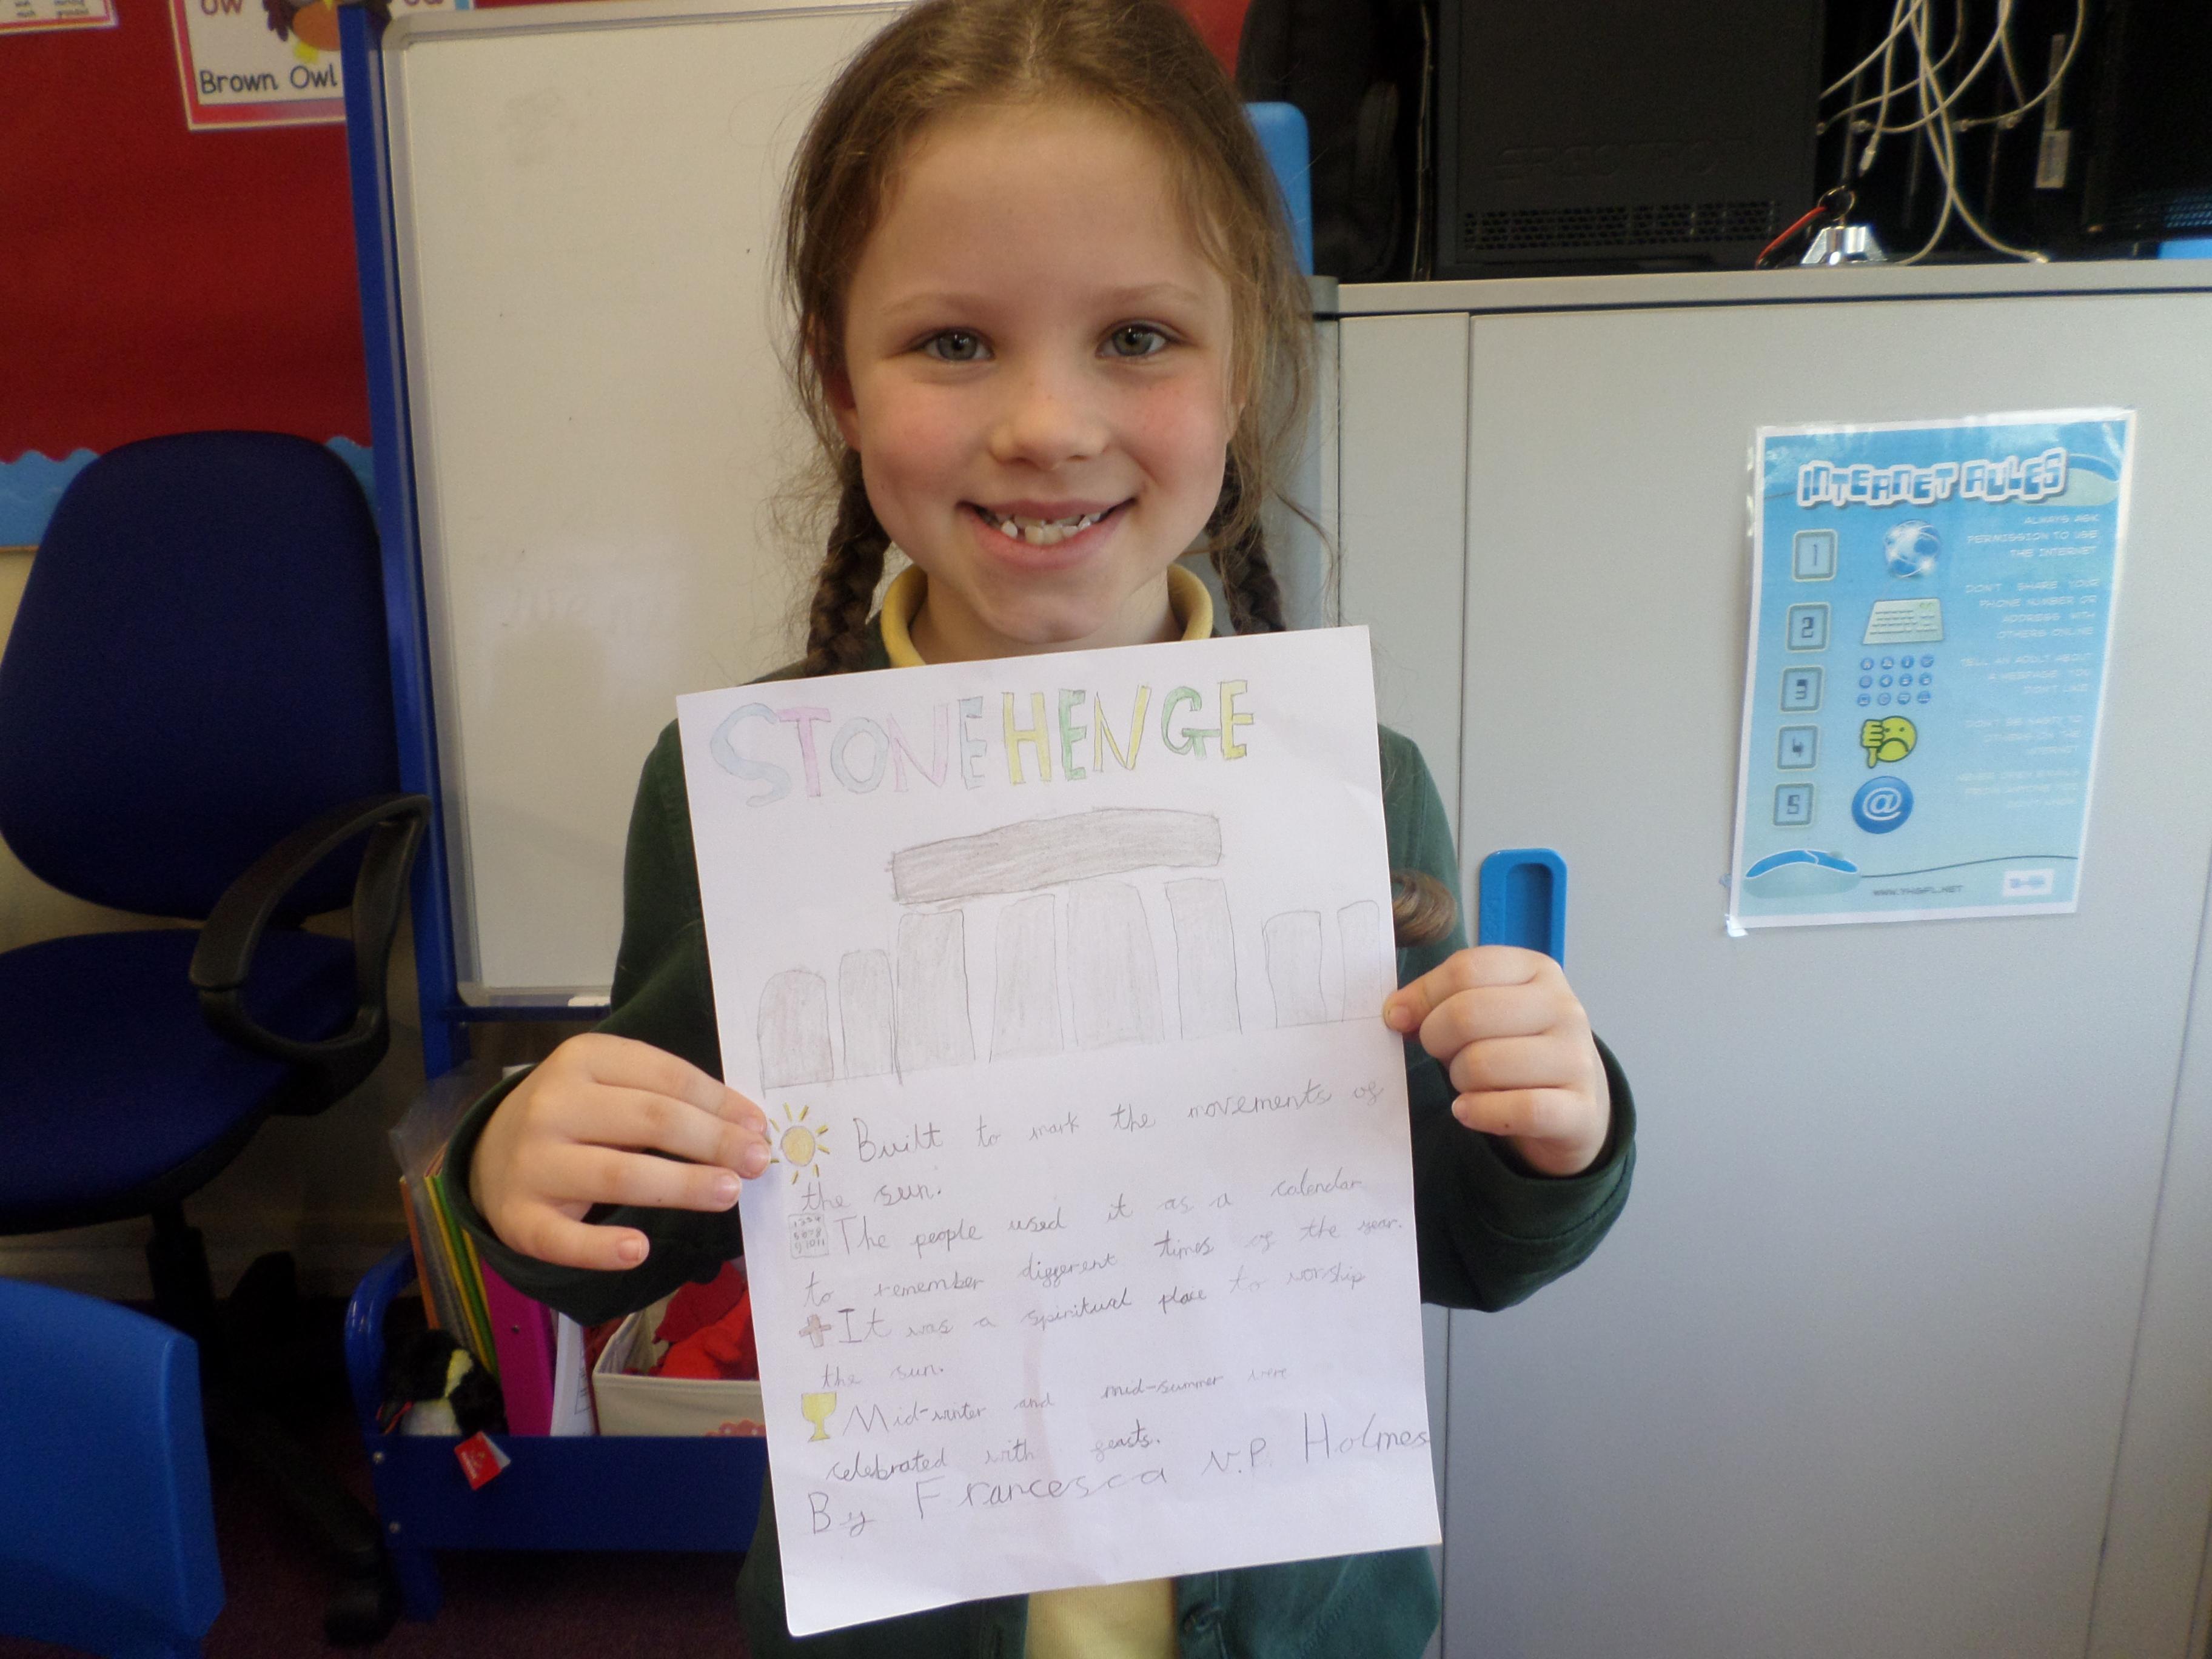 ow
Brown Owl
STONEHENGE
Built to mark the movements of
the sun.
1234
The people used it as a calendar
to remember different times of the year.
It was a spiritual place to worship
the sun.
Mid-winter and mid-summer were
celebrated with feasts.
By Francesca N.P. Holmes
INTERNET RULES
1
ALWAYS ASK
PERMISSION TO USE
THE INTERNET
2
DON'T SHARE YOUR
PHONE NUMBER OR
ADDRESS WITH
OTHERS ONLINE
3
TELL AN ADULT ABOUT
A WEBPAGE YOU
DON'T LIKE
4
DON'T BE NASTY TO
OTHERS ON THE
INTERNET
5
NEVER OPEN EMAILS
FROM ANYONE YOU
DON'T KNOW
@